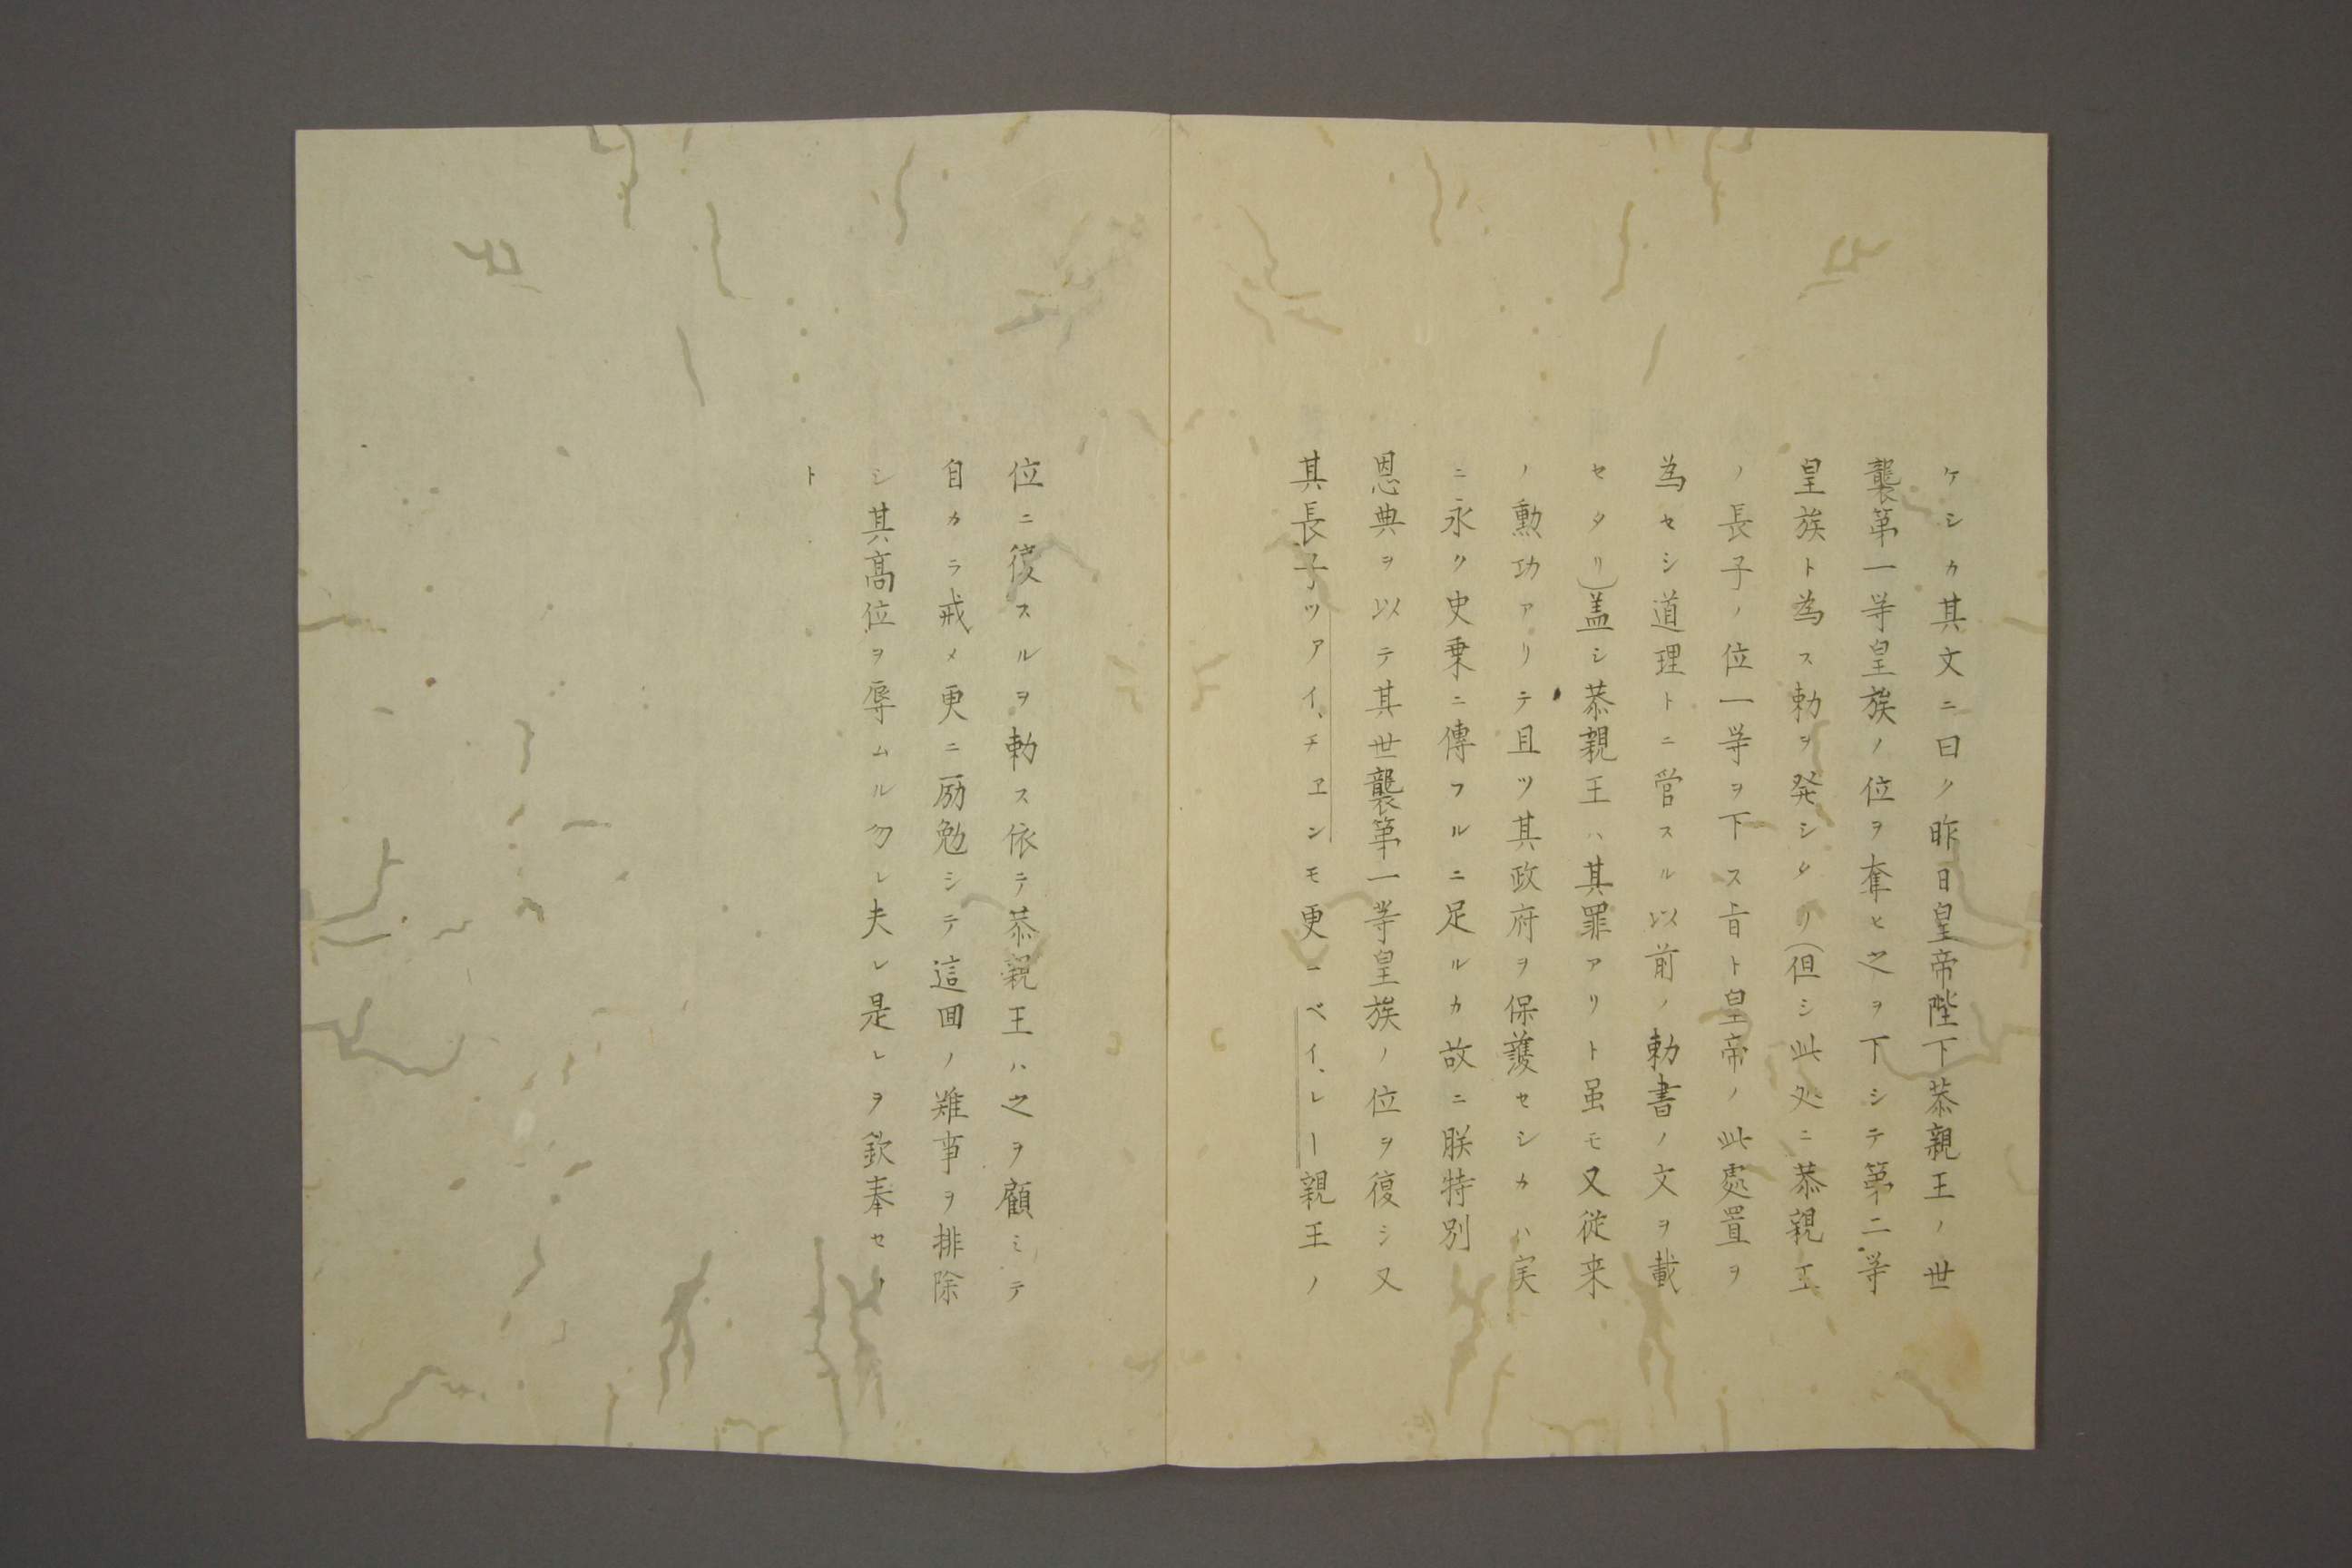 ケシカ其文ニ曰ク昨日皇帝陛下恭親王ノ世
襲第一等皇族ノ位ヲ奪ヒ之ヲ下シテ第二等
皇族ト為ス勅ヲ発シタリ(但シ此処ニ恭親王
ノ長子ノ位一等ヲ下ス旨ト皇帝ノ此處置ヲ
為セシ道理トニ管スル以前ノ勅書ノ文ヲ載
セタリ)盖シ恭親王ハ其罪アリト虽モ又従来
ノ勲功アリテ且ツ其政府ヲ保護セシカハ実
ニ永ク史乗ニ傳フルニ足ルカ故ニ朕特別
恩典ヲ以テ其世襲第一等皇族ノ位ヲ復シ又
其長子ツアイ、チヱンモ更ニベイ、レー親王ノ
位ニ復スルヲ勅ス依テ恭親王ハ之ヲ顧ミテ
自カラ戒メ更ニ励勉シテ這回ノ難事ヲ排除
シ其高位ヲ辱ムル勿レ夫レ是レヲ欽奉セヨ
ト